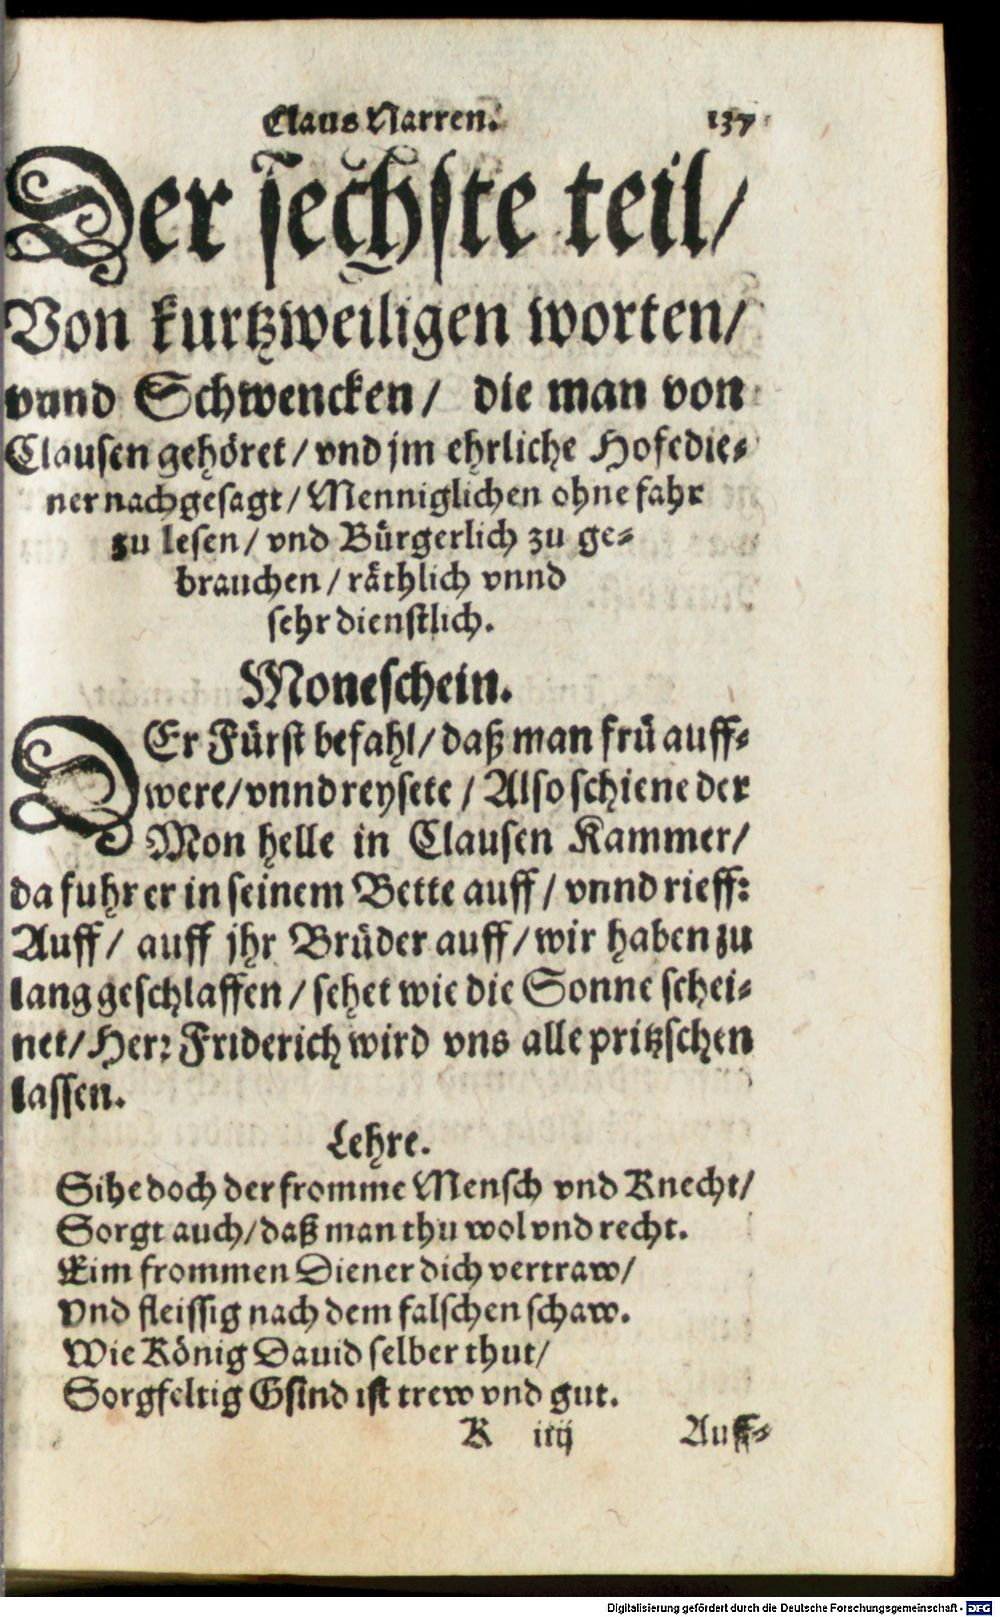 Claus Narren. 137
Der sechste teil/
Von kurtzweiligen worten/
vnnd Schwencken/ die man von
Clausen gehöret/ vnd jm ehrliche Hofedie-
ner nachgesagt/ Menniglichen ohne fahr
zu lesen/ vnd Bürgerlich zu ge-
brauchen/ räthlich vnnd
sehr dienstlich.
Moneschein.
DEr Fürst befahl/ daß man frü auff-
were/ vnnd reysete/ Also schiene der
Mon helle in Clausen Kammer/
da fuhr er in seinem Bette auff/ vnnd rieff:
Auff/ auff jhr Brüder auff/ wir haben zu
lang geschlaffen/ sehet wie die Sonne schei-
net/ Herr Friderich wird vns alle pritzschen
lassen.
Lehre.
Sihe doch der fromme Mensch vnd Knecht/
Sorgt auch/ daß man thu wol vnd recht.
Eim frommen Diener dich vertraw/
Vnd fleissig nach dem falschen schaw.
Wie König Dauid selber thut/
Sorgfeltig Gsind ist trew vnd gut.
K iiij Auff-
Digitalisierung gefördert durch die Deutsche Forschungsgemeinschaft - DFG